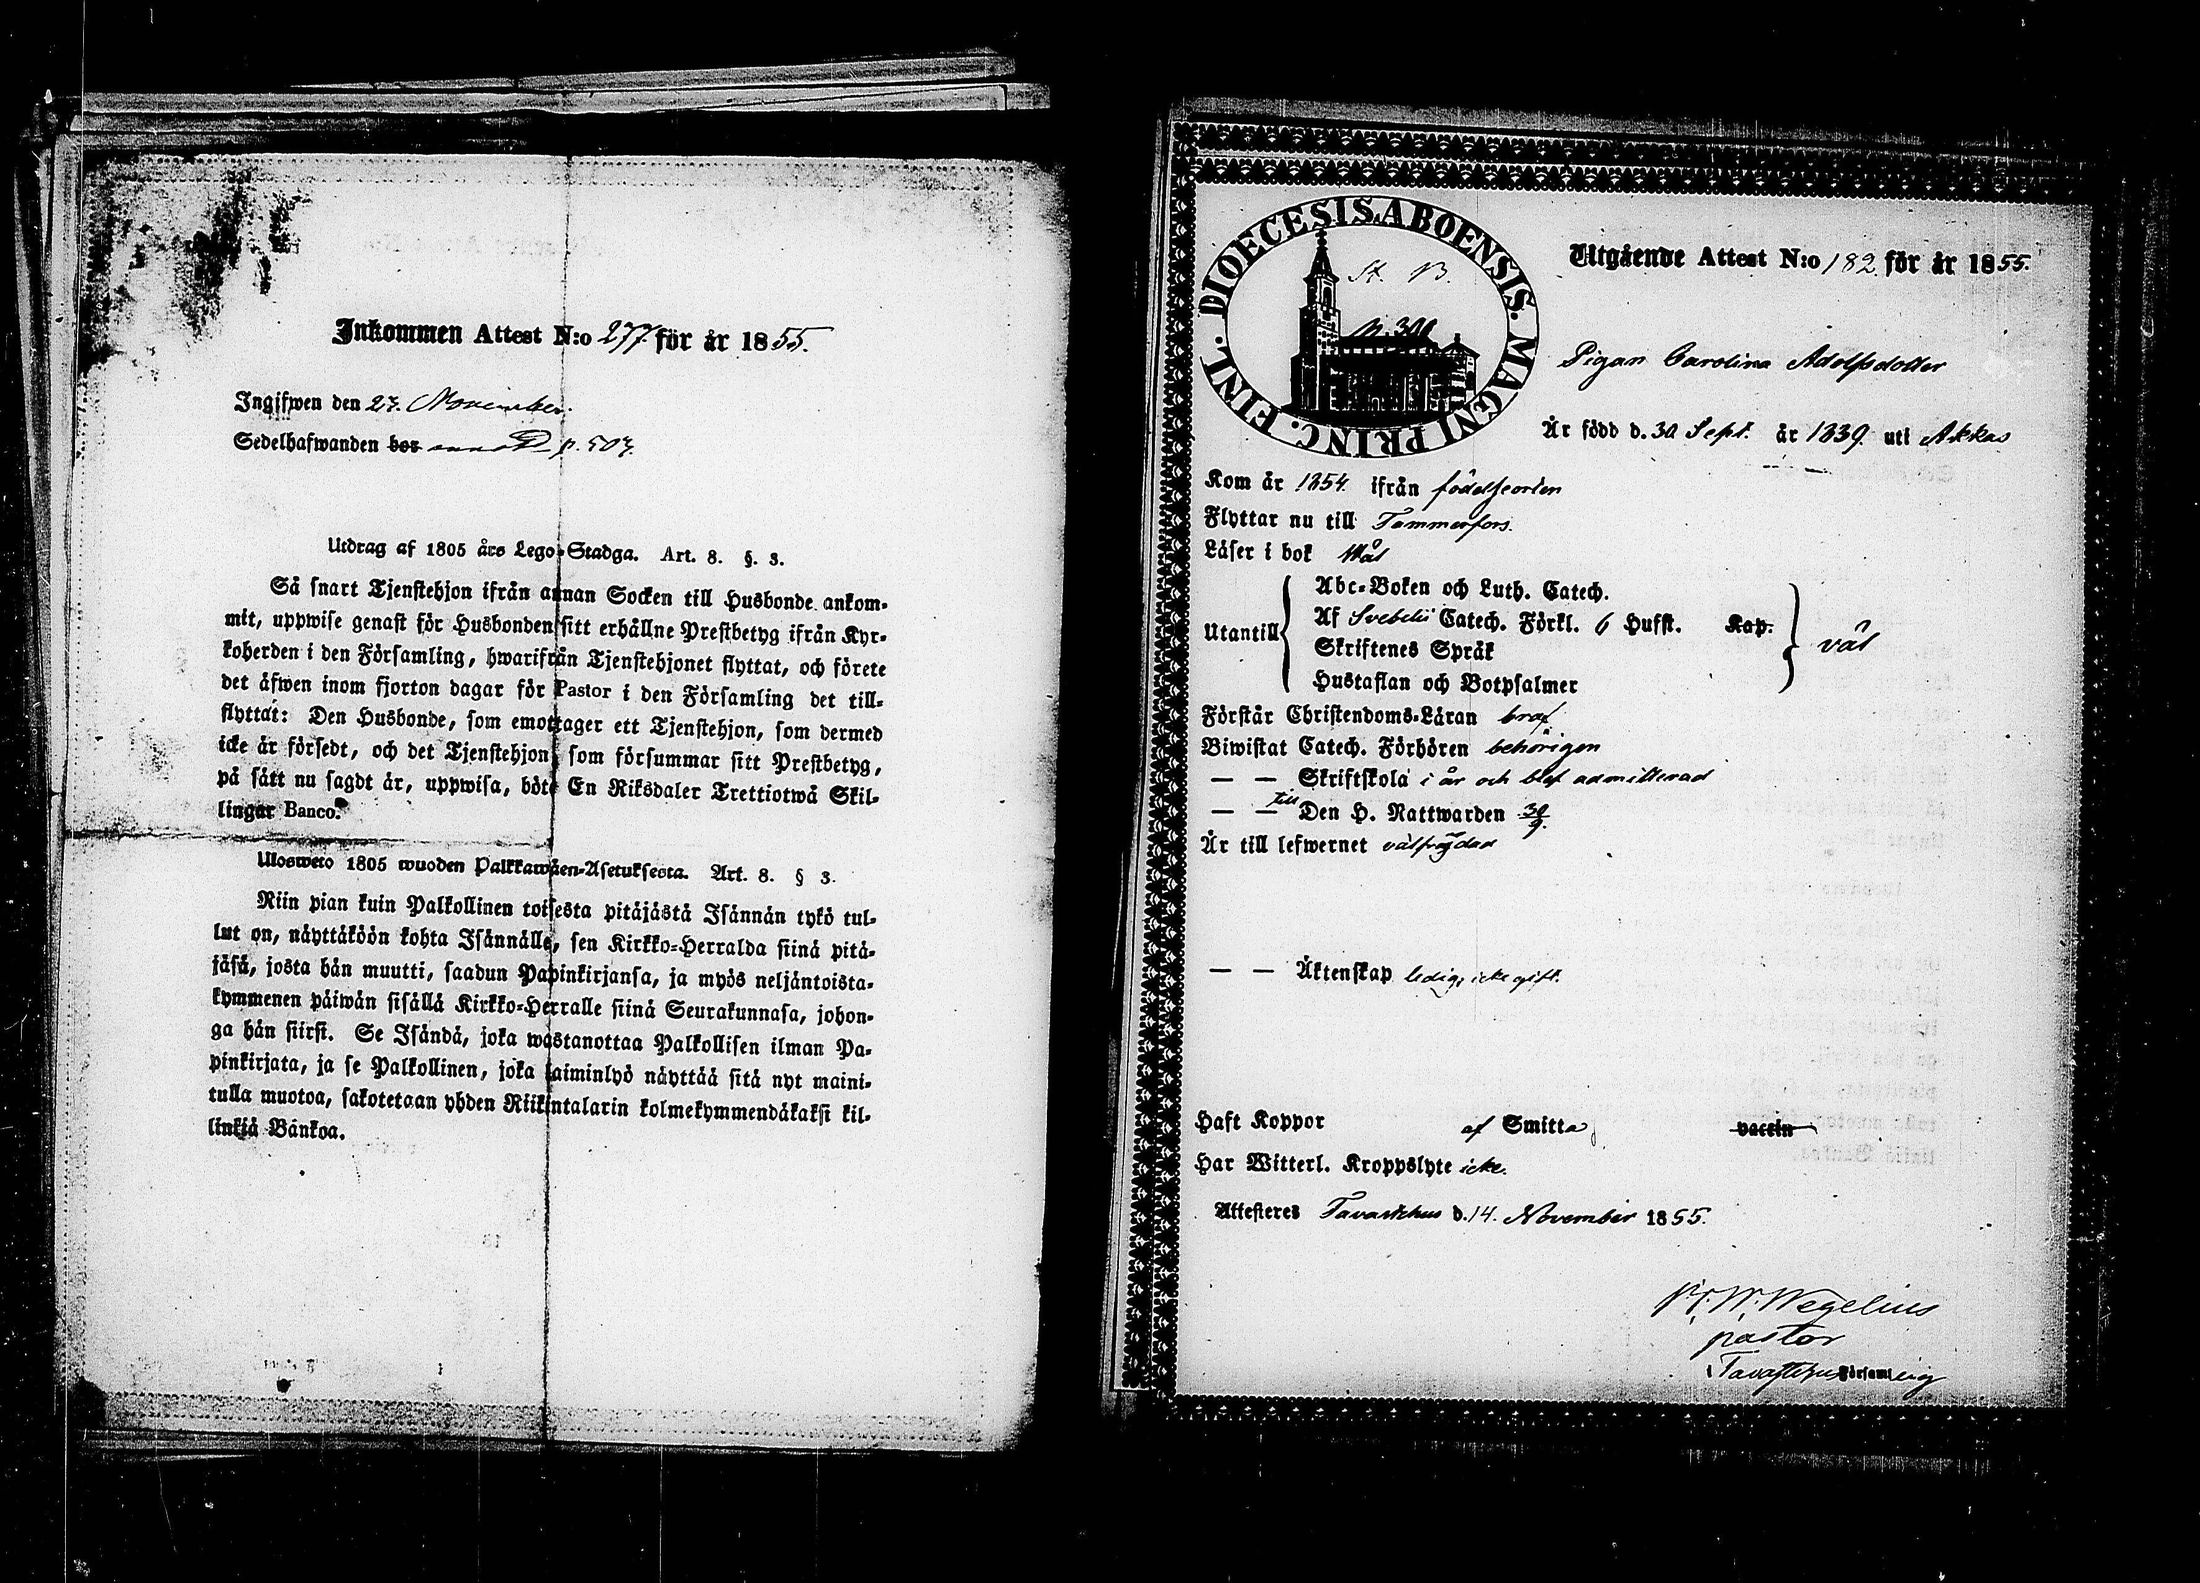 Inkommen Attest N:o 277. för år 1855.
Ingifwen den 27. November.
Sedelhafwanden bor p. 507.
Utdrag af 1805 års Lego-Stadga. Art. 8. §. 3.
Så snart Tjenstehjon ifrån annan Socken till Husbonde ankom-
mit, uppwise genast för Husbonden sitt erhållne Prestbetyg ifrån Kyr-
koherden i den Församling, hwarifrån Tjenstehjonet flyttat, och förete
det äfwen inom fjorton dagar för Pastor i den Församling det till-
flyttat: Den Husbonde, som emottager ett Tjenstehjon, som dermed
icke är försedt, och det Tjenstehjon som försummar sitt Prestbetyg,
på sätt nu sagdt är, uppwisa, böte En Riksdaler Trettiotwå Skil-
lingar Banco.
Ulosweto 1805 wuoden Palkkawäen-Asetuksesta. Art. 8. § 3.
Niin pian kuin Palkollinen toisesta pitäjästä Isännän tykö tul-
lut on, näyttäköön kohta Isännälle, sen Kirkko-Herralda siinä pitä-
jäsä, josta hän muutti, saadun Papinkirjansa, ja myös neljäntoista-
kymmenen päiwän sisällä Kirkko-Herralle siinä Seurakunnasa, johon-
ga hän siirsi. Se Isändä, joka wastanottaa Palkollisen ilman Pa-
pinkirjata, ja se Palkollinen, joka laiminlyö näyttää sitä nyt maini-
tulla muotoa, sakotetaan yhden Riikintalarin kolmekymmendäkaksi kil-
linkiä Bankoa.
DIOECESIS ABOENSIS. MAGNI PRINC. FINL.
St. B.
p. 301
Utgående Attest N:o 182 för år 1855.
Pigan Carolina Adolfsdotter
Är född d. 30 Sept. år 1839. uti Akkas
Kom år 1854. ifrån födelseorten
Flyttar nu till Tammerfors.
Läser i bok väl
Utantill
Abc-Boken och Luth. Catech.
Af Svebelii Catech. Förkl. 6 Hufst. Kap.
Skriftenes Språk
Hustaflan och Botpsalmer
väl
Förstår Christendoms-Läran braf
Biwistat Catech. Förhören behörigen
— — Skriftskola i år och blef admitterad
— — till Den H. Nattwarden 30/9.
Är till lefwernet välfrägdad
— — Äktenskap ledig, icke gift.
Haft Koppor af Smitta vaccin
Har Witterl. Kroppslyte icke.
Attesteres Tavastehus d. 14. November 1855.
Wegelius
pastor
i Tavastehus Församling